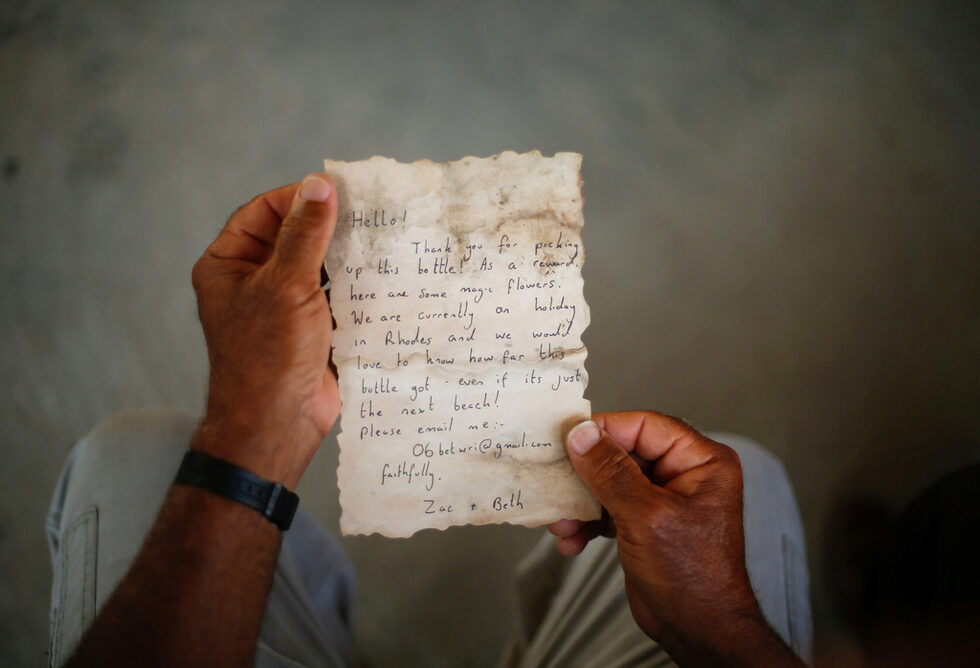 Hello!
Thank you for picking
up this bottle! As a reward,
here are some magic flowers.
We are currently on holiday
in Rhodes and we would
love to know how far this
bottle got - even if its just
the next beach!
Please email me:-
06betwri@gmail.com
faithfully.
Zac + Beth